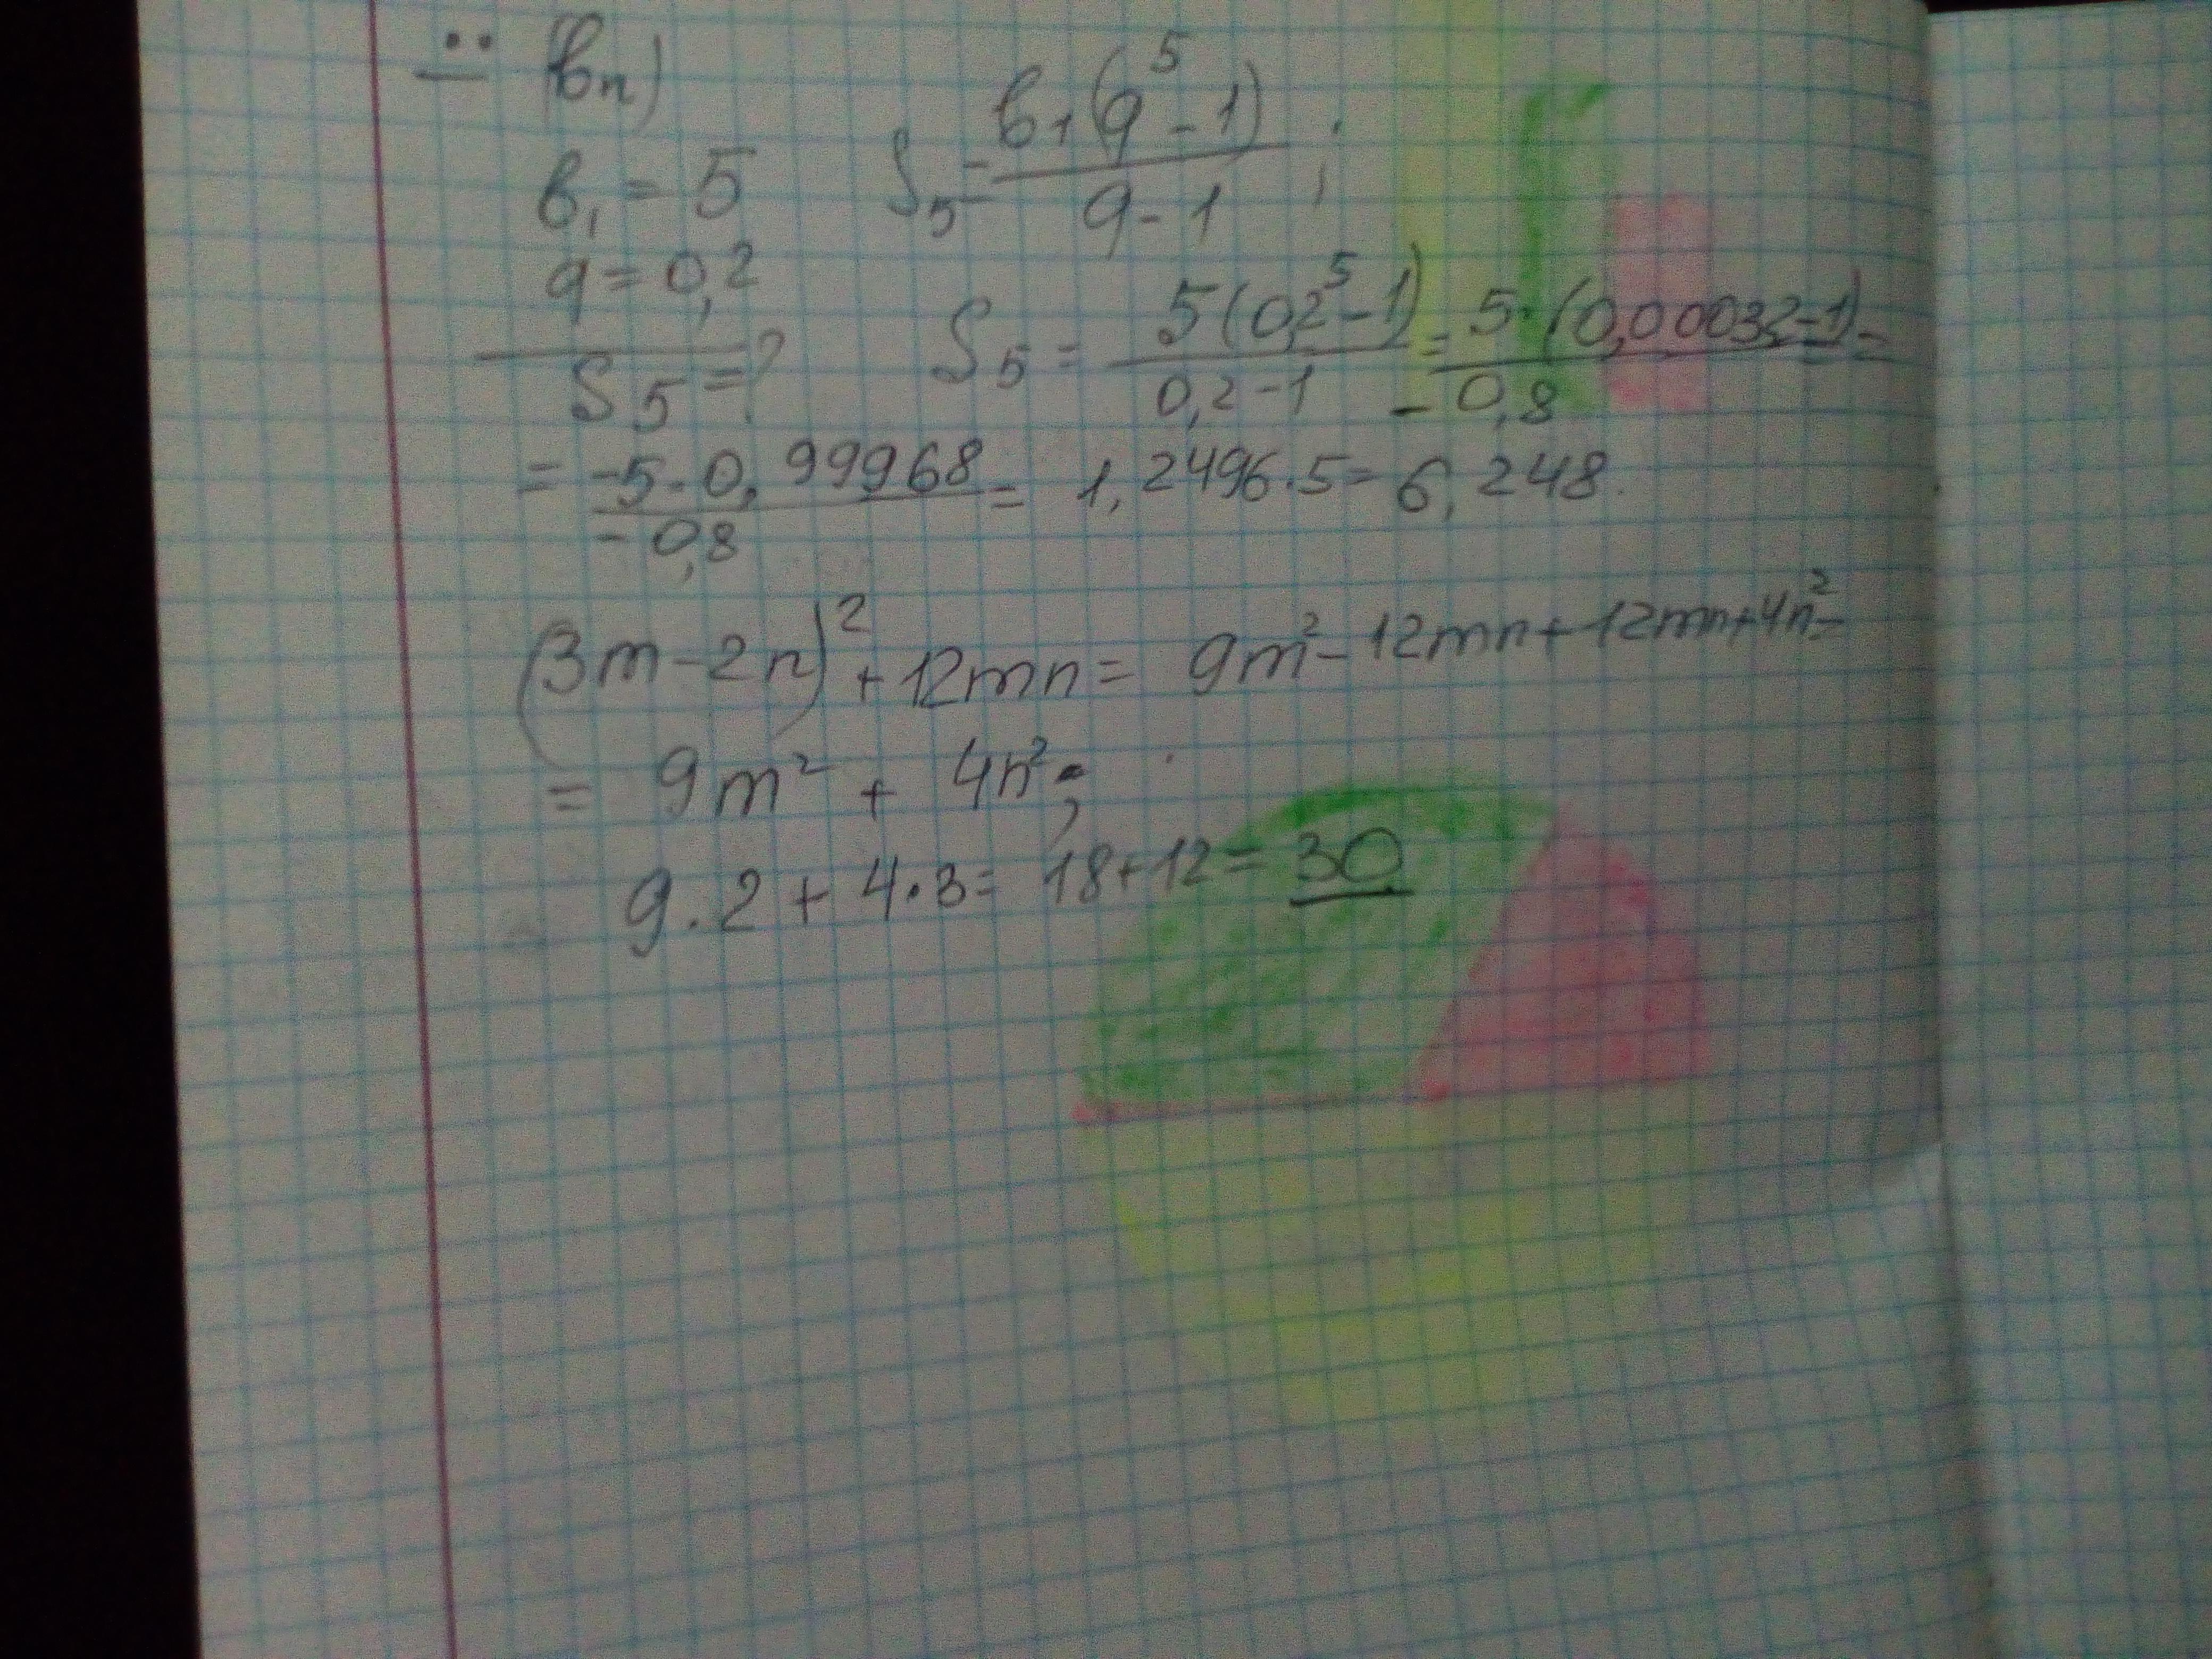 ∺ (bn)
b₁ = 5
q = 0,2
S₅ = ?
S₅ = b₁(q⁵ - 1) / q - 1 ;
S₅ = 5(0,2⁵ - 1) / 0,2 - 1 = 5·(0,00032 - 1) / - 0,8 =
= -5·0,99968 / - 0,8 = 1,2496·5 = 6,248.
(3m - 2n)² + 12mn = 9m² - 12mn + 12mn + 4n² =
= 9m² + 4n² ;
9·2 + 4·3 = 18 + 12 = 30